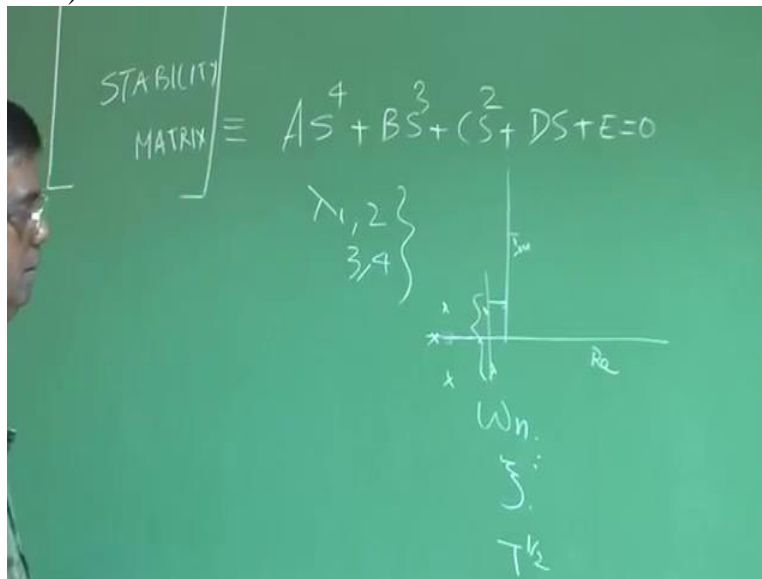 STABILITY
MATRIX ≡ AS⁴ + BS³ + CS² + DS + E = 0
λ1, 2
3, 4
Im
Re
ωn.
ξ.
T^1/2